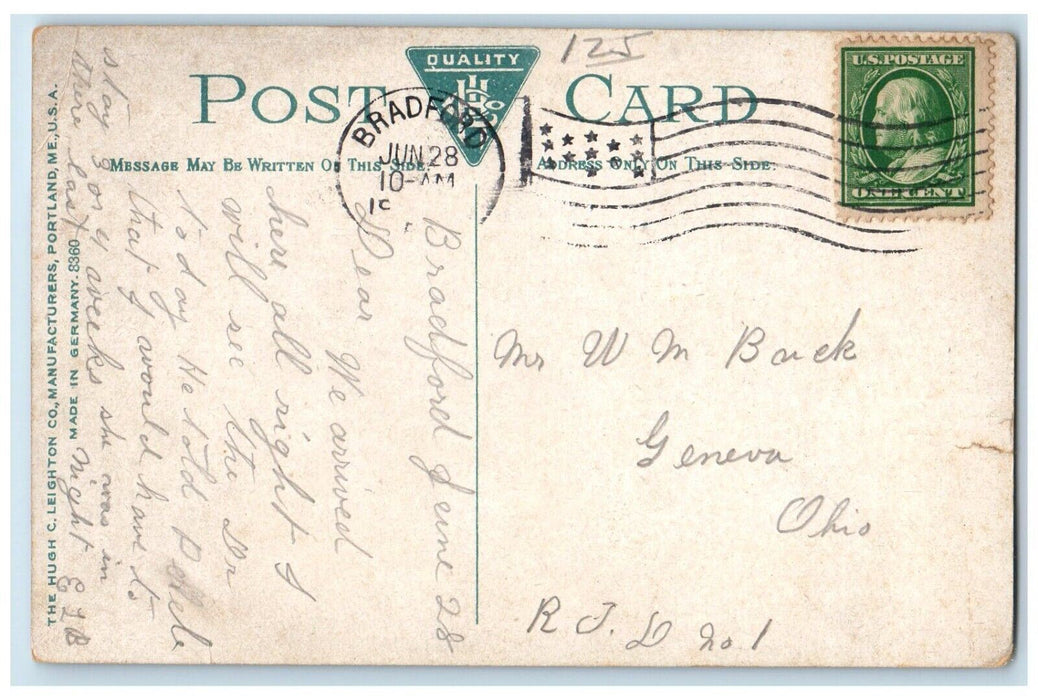 125
POST CARD
QUALITY
U.S. POSTAGE
ONE CENT
BRADFORD
JUN 28
10-AM
MESSAGE MAY BE WRITTEN ON THIS SIDE.
ADDRESS ONLY ON THIS SIDE.
Bradford June 28
Dear We arrived
here all right I
will see the Dr
to day He told
that I would have to
stay 3 or 4 weeks she was in
there last night E L B
Mr W M Buck
Geneva
Ohio
R F D no 1
THE HUGH C. LEIGHTON CO., MANUFACTURERS, PORTLAND, ME., U.S.A.
MADE IN GERMANY. 8360